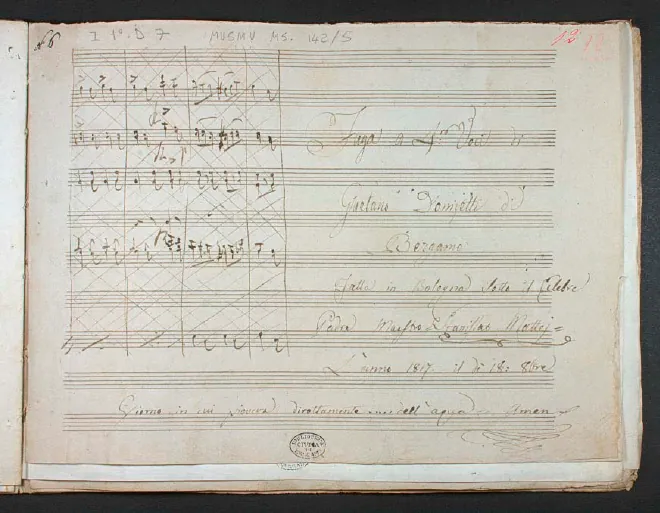 I 1° D 7 MUSMU MS. 142/5
12
Fuga a 4ro Voci di
Gaetano Donizetti di
Bergamo
Fatta in Bologna sotto il Celebre
Padre Maestro Stanislao Mattei
L'anno 1817. il dì 18: 8bre
Giorno in cui pioveva direttamente dell'aqua Amen